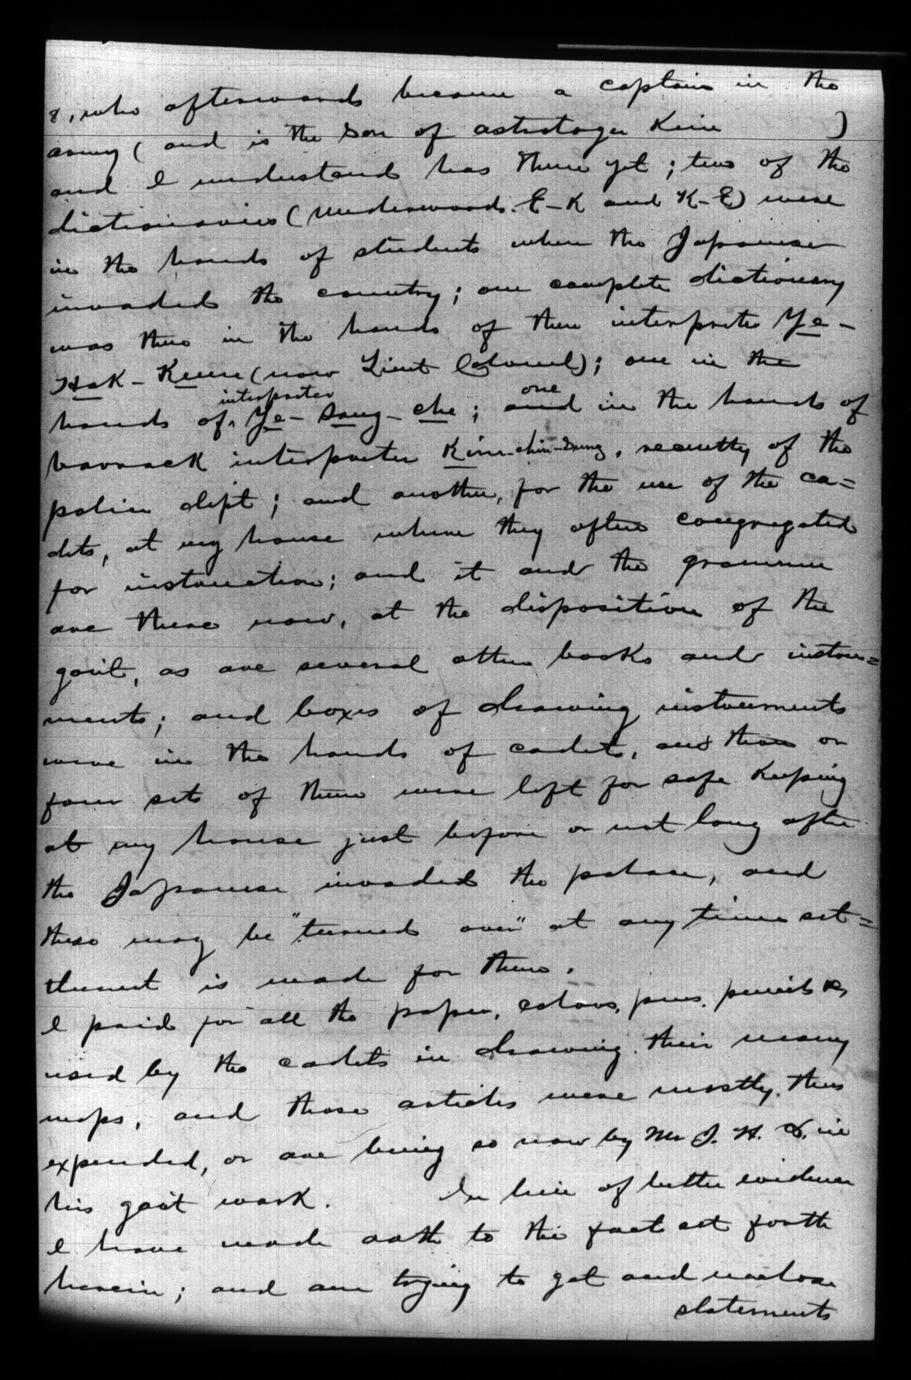 8, who afterwards became a captain in the
army (and is the son of astrologer Kim )
and I understand has them yet; two of the
dictionaries (Underwoods E-K and K-E) were
in the hands of students when the Japanese
invaded the country; one complete dictionary
was then in the hands of then interpreter Ye-
Hak-Keun (now Lieut Colonel); one in the
hands of interpreter Ye-Sang-che; one and in the hands of
barrack interpreter Kim-chin-Sung, security of the
police dept; and another, for the use of the ca=
dets, at my house where they often congregated
for instruction; and it and the grammar
are there now, at the disposition of the
gov't, as are several other books and instru=
ments; and boxes of drawing instruments
were in the hands of cadets, and three or
four sets of them were left for safe keeping
at my house just before or not long after
the Japanese invaded the palace, and
these may be "turned over" at any time set=
tlement is made for them.
I paid for all the paper, colors, pens, pencils &c
used by the cadets in drawing their many
maps, and those articles were mostly thus
expended, or are being so now by Mr J. H. D. in
his gov't work. In lieu of better evidence
I have made oath to the fact set forth
herein; and am trying to get and enclose
statements